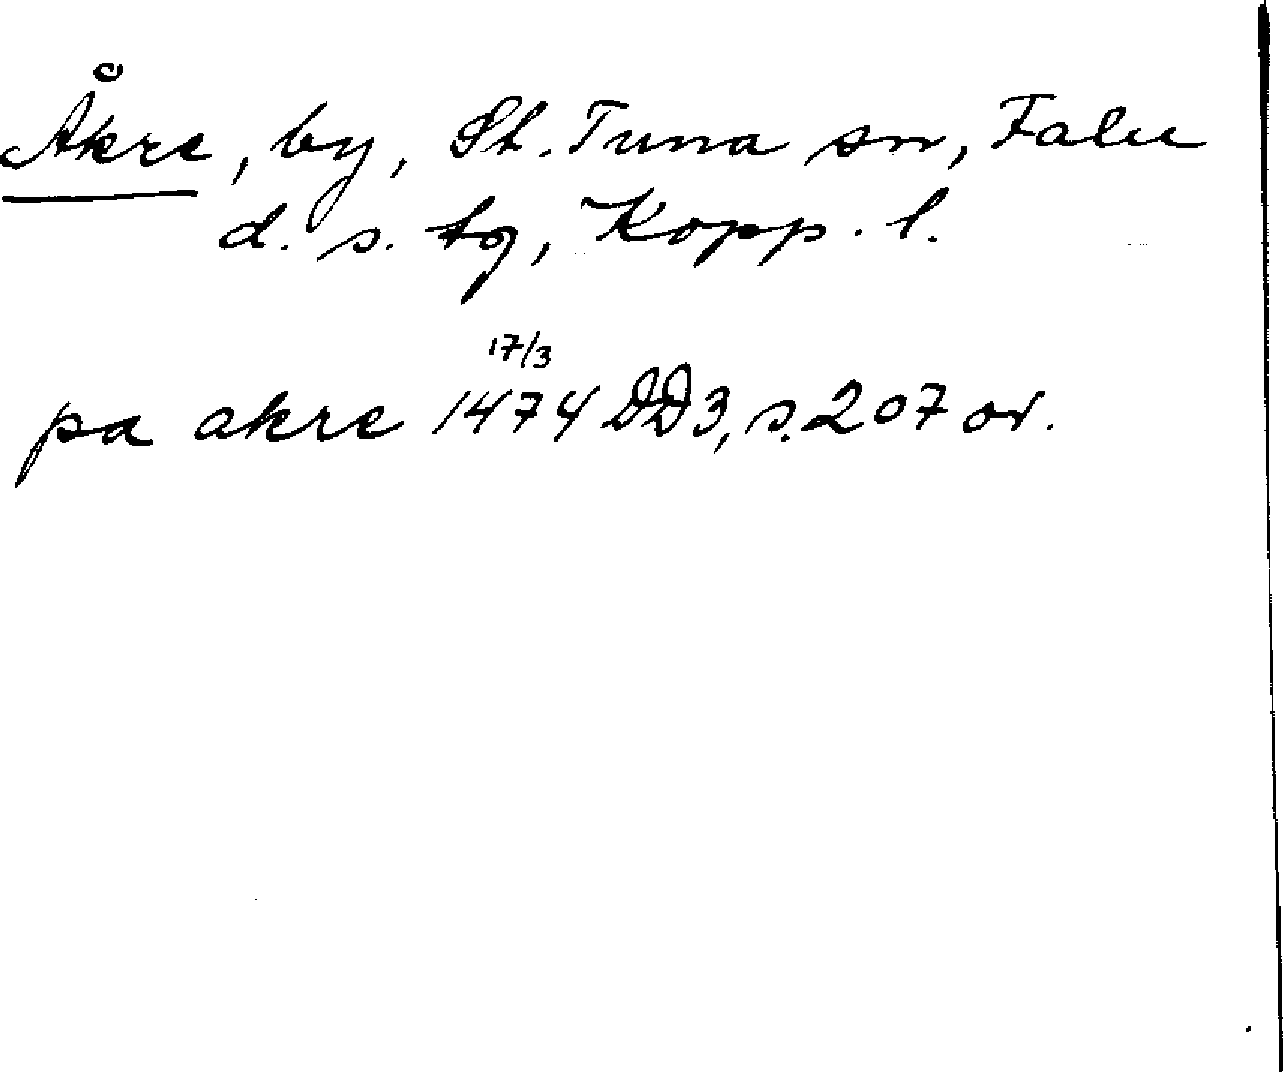 Åkre, by, St. Tuna sn, Falu
d. s. tg, Kopp. l.
pa akre 17/3 1474 DD3, s. 207 or.